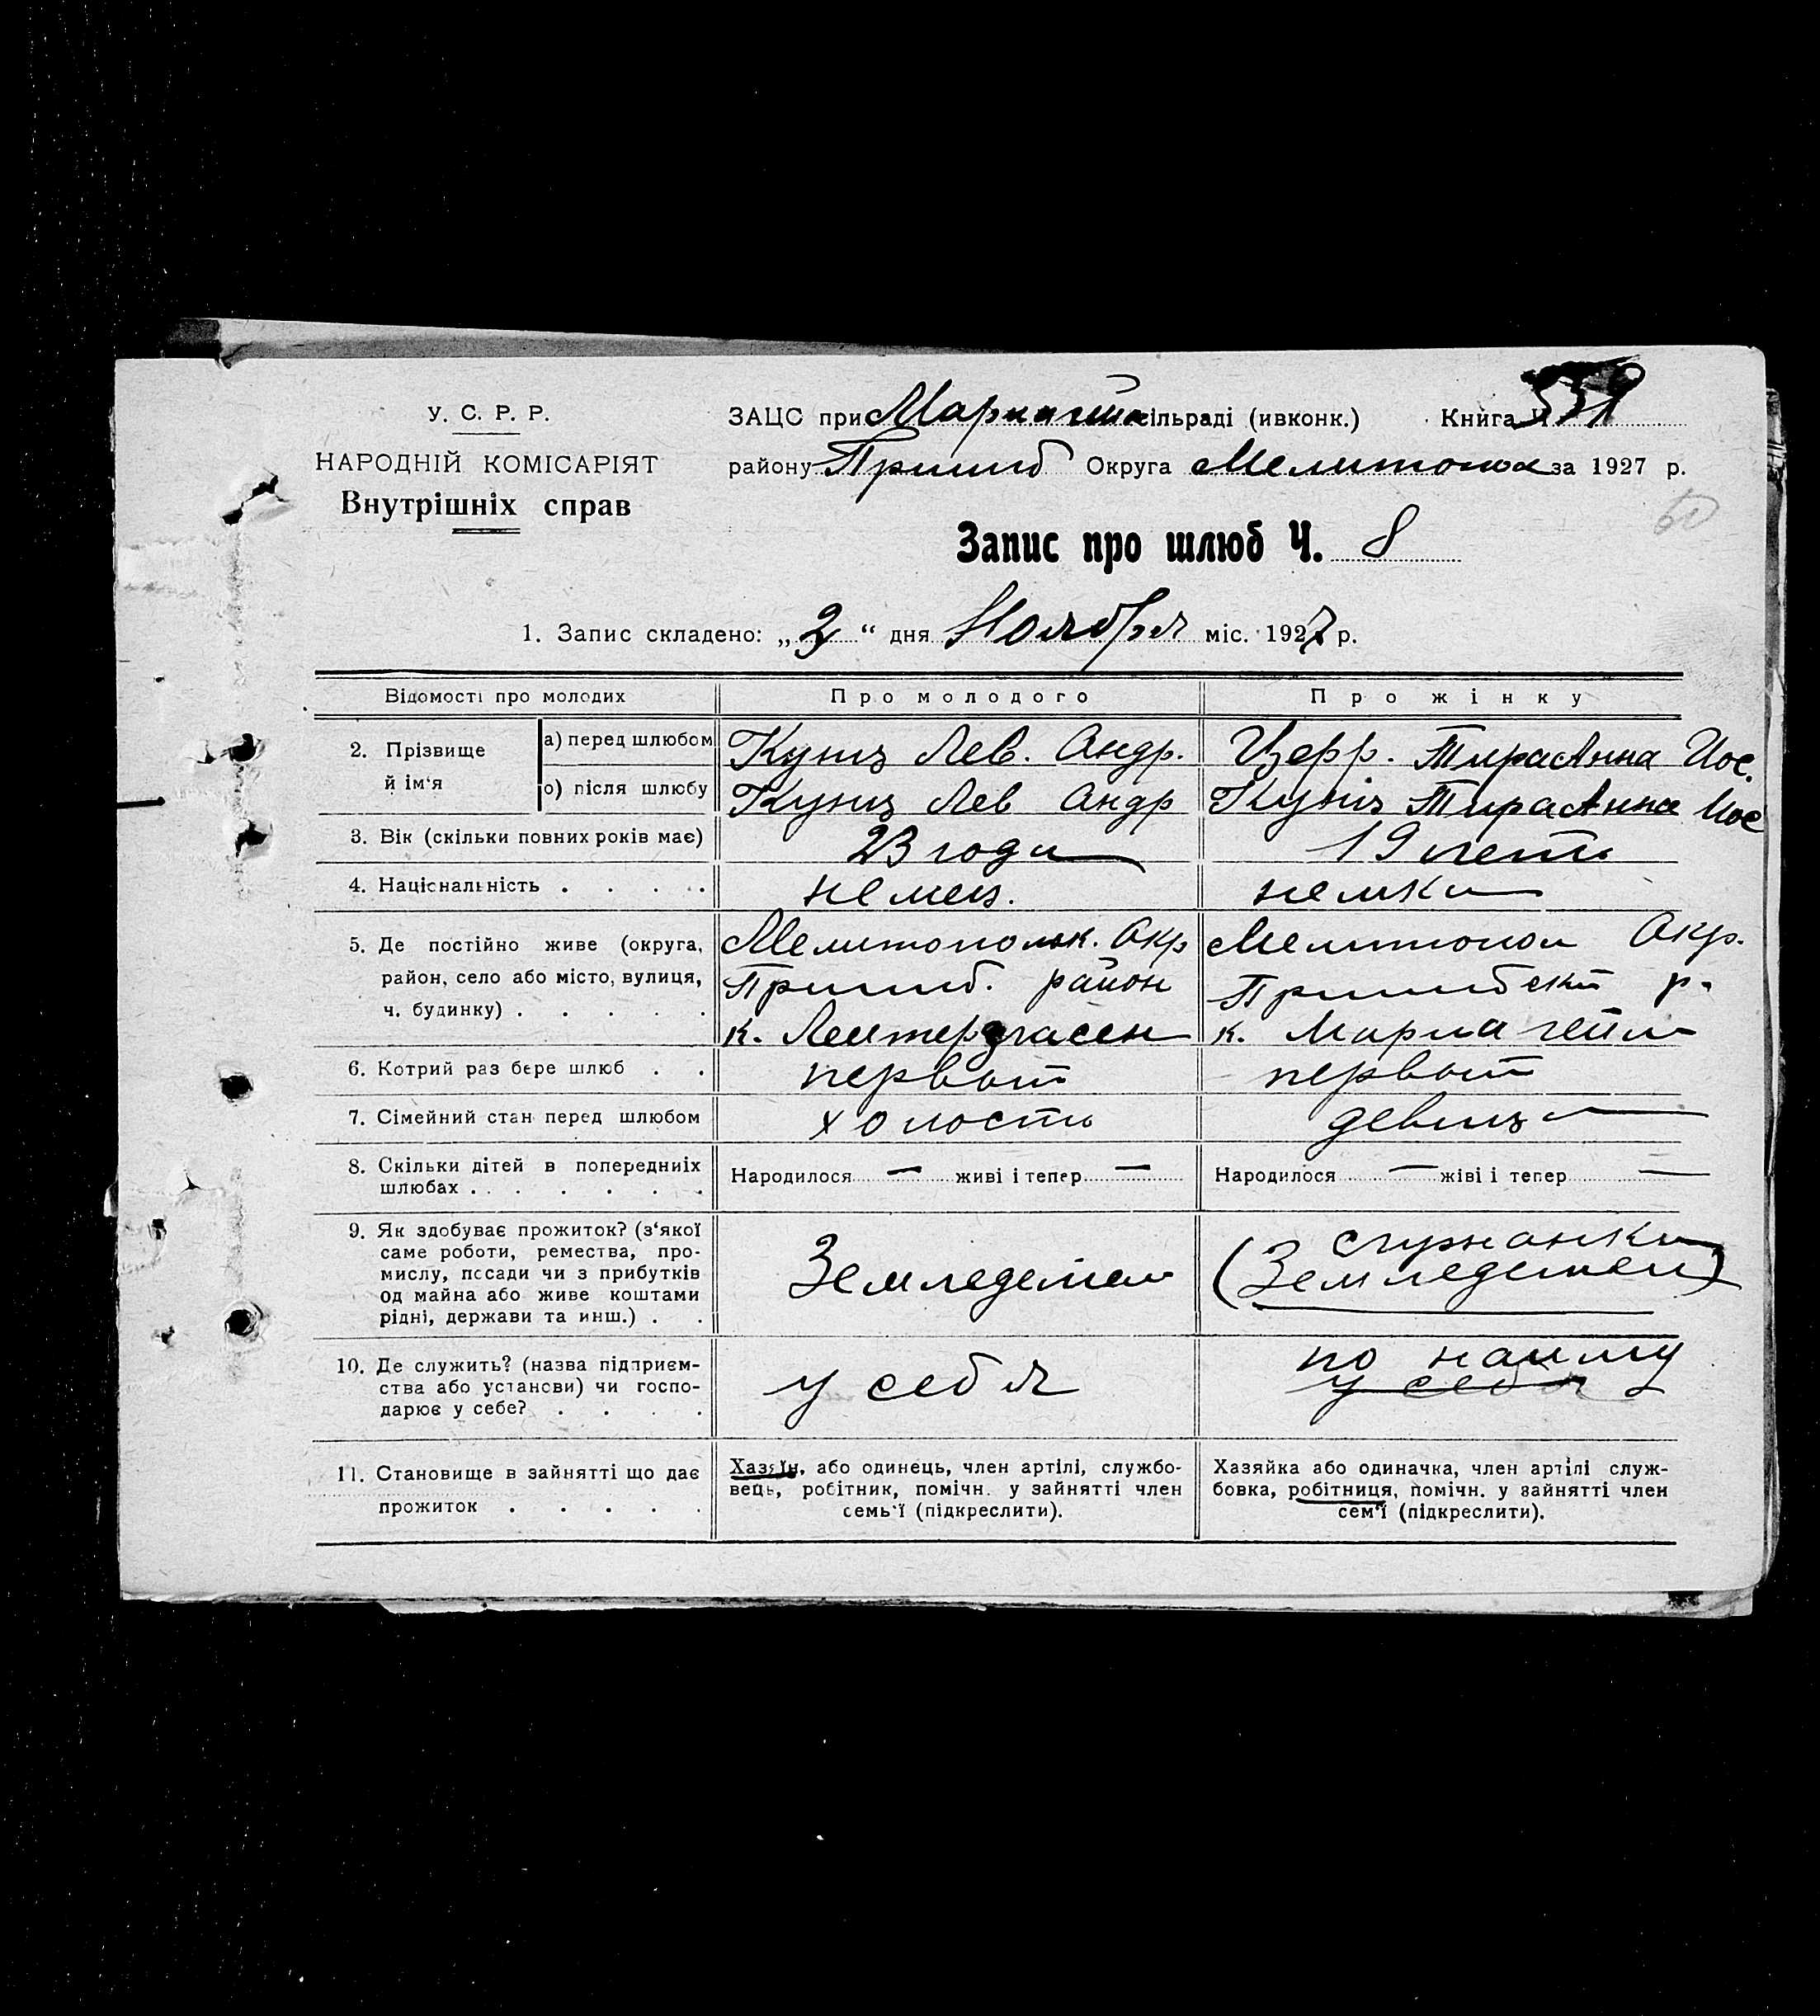 У. С. Р. Р.
НАРОДНІЙ КОМІСАРІЯТ
Внутрішніх справ
ЗАЦС при сільраді (ивконк.) Книга Ч
району Пришиб Округа Мелитопол за 1927 р.
Запис про шлюб Ч. 8
1. Запис складено: „2“ дня Ноября міс. 1927 р.
Відомості про молодих
Про молодого
Про жінку
2. Прізвище й ім‘я
а) перед шлюбом
Кунц Лев. Андр.
Церр. Анна Иос.
о) після шлюбу
Кунц Лев Андр
Кунц Анна Иос
3. Вік (скільки повних років має)
23 года
19 лет
4. Національність . . . .
немец.
немка
5. Де постійно живе (округа,
район, село або місто, вулиця,
ч. будинку) . . . . .
Мелитопольк. Окр
Пришиб. район
к.
Мелитопол Окр.
Пришибский р.
к. Мариагейм
6. Котрий раз бере шлюб . .
первый
первый
7. Сімейний стан перед шлюбом
холость
девица
8. Скільки дітей в попередниіх
шлюбах . . . . . . .
Народилося — живі і тепер —
Народилося — жіві і тепер —
9. Як здобуває прожиток? (з‘якої
саме роботи, ремества, про-
мислу, посади чи з прибутків
од майна або живе коштами
рідні, держави та инш.) . .
Земледелец
служанка
(Земледелец)
10. Де служить? (назва підприєм-
ства або установи) чи госпо-
дарює у себе? . . . .
у себя
по найму
у себя
11. Становище в зайнятті що дає
прожиток . . . . .
Хазяїн, або одинець, член артілі, службо-
вець, робітник, помічн. у зайнятті член
семь‘ї (підкреслити).
Хазяйка або одиначка, член артілі служ-
бовка, робітниця, помічн. у зайнятті член
сем‘ї (підкреслити).